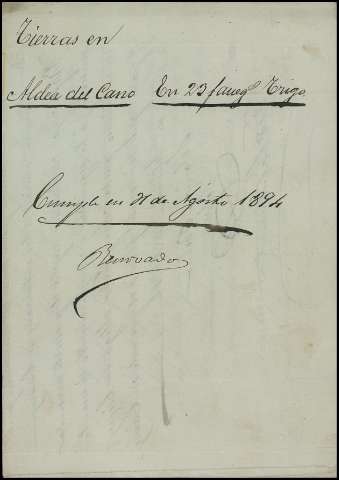 Tierras en
Aldea del Cano En 23 faneg.s Trigo
Cumple en 31 de Agosto 1894
Renovado